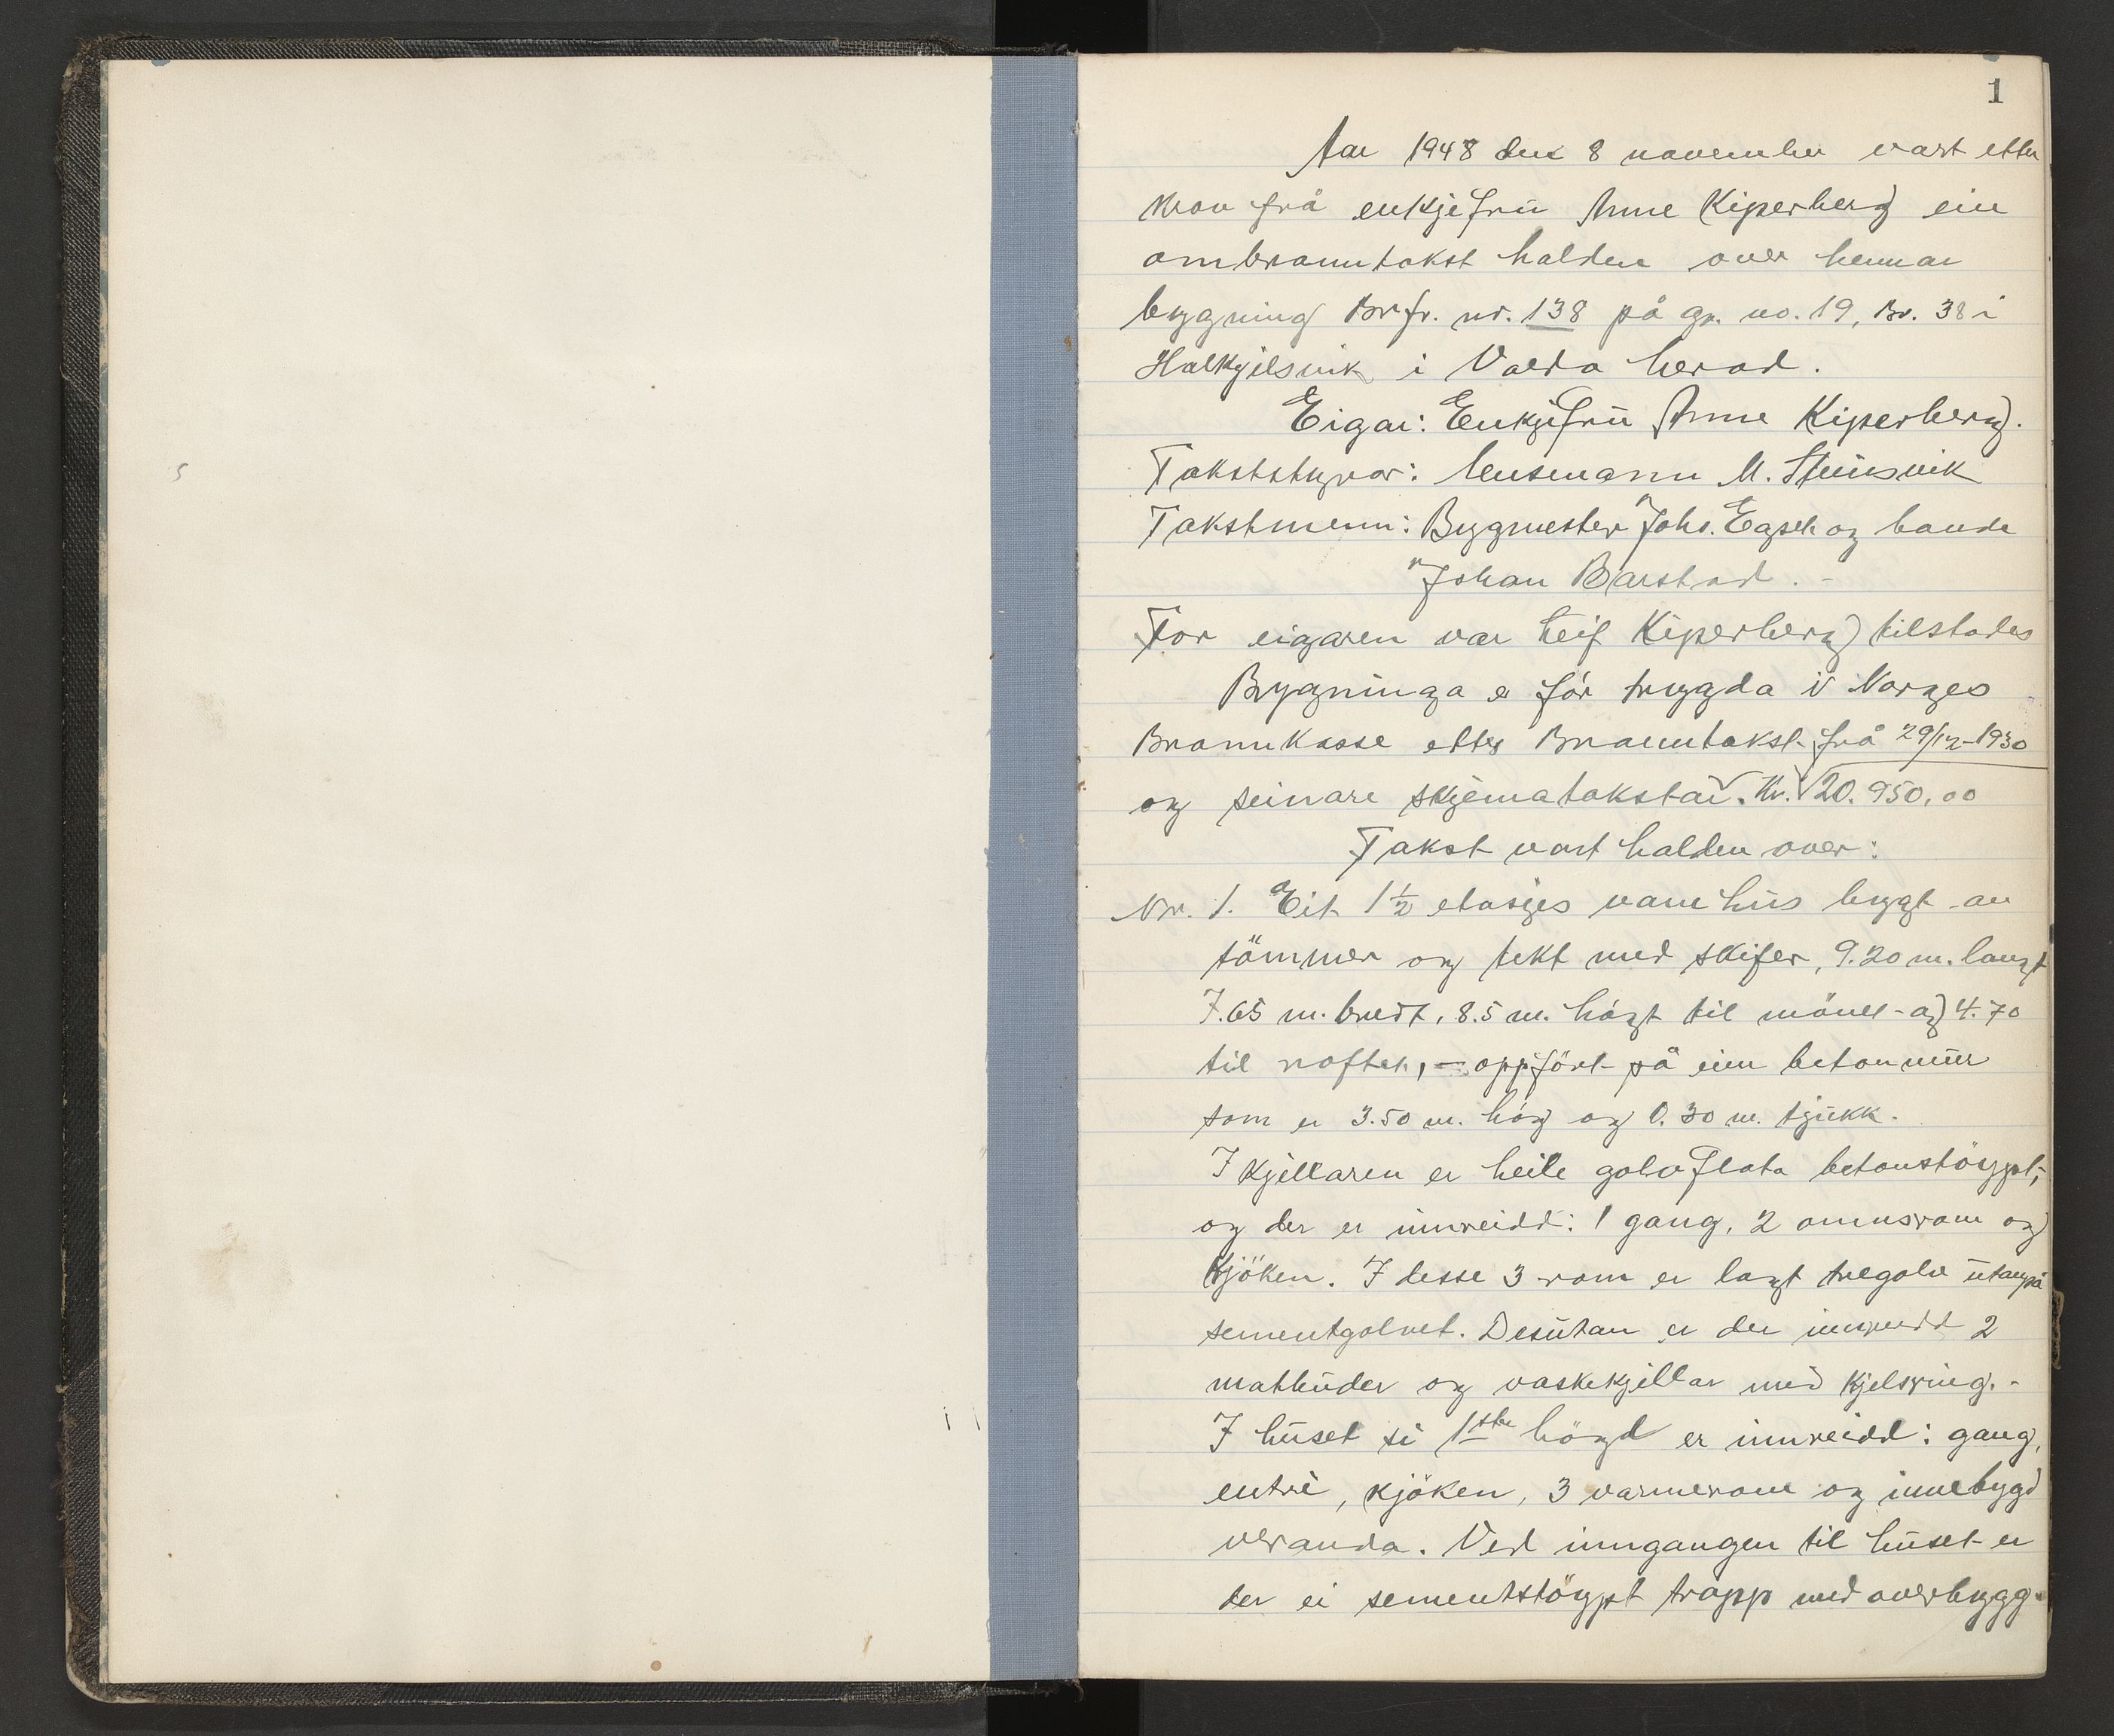 1
Aar 1948 den 8 november vart etter
krav frå enkjefrū Anne Kiperberg ein
ombranntakst halden over hennar
bygning Brfr. nr. 138 på gr. no. 19, Br. 38 i
Halkjelsvik i Volda herad.
Eigar: Enkjefrū Anne Kiperberg.
Takststyrar: lensmann M. Steinsvik
Takstmenn: Bygmester Johs. Egset og bonde
Johan Barstad. -
For eigaren var Leif Kiperberg tilstades
Bygninga er för trygda i Norges
Brannkasse etter Branntakst frå 29/12-1930
og seinare skjematakstar. Kr. 20.950,00
Takst vart halden over:
Nr. 1. Eit 1½ etasjes vånehūs bygt av
tömmer og tekt med skifer, 9.20 m. langt
7.65 m. bredt, 8.5 m. högt til mönet - og 4.70
til roftet, - oppfört på ein betonmūr
som er 3.50 m. hög og 0.30 m. tjūkk.
I kjellaren er heile golvflata betonstöypt,
og der er innreidd: 1 gang, 2 omnsrom og
kjöken. I desse 3 rom er lagt tregolv ūtanpå
sementgolvet. Desūtan er der innreidd 2
matbūder og vaskekjellar med kjelsring. -
I hūset si 1ste högd er innreidd: gang,
entrè, kjöken, 3 varmerom og innebygd
veranda. Ved inngangen til hūset er
der ei sementstöypt trapp med overbygg-